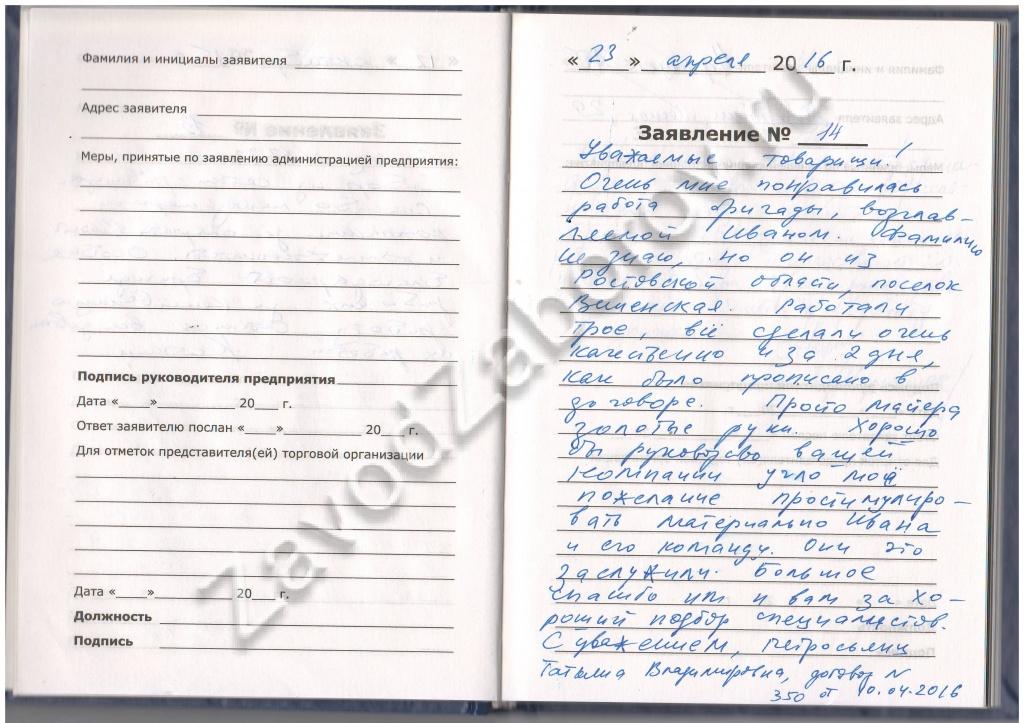 Фамилия и инициалы заявителя
Адрес заявителя
Меры, принятые по заявлению администрацией предприятия:
Подпись руководителя предприятия
Дата «____»__________ 20___ г.
Ответ заявителю послан «____»__________ 20___г.
Для отметок представителя(ей) торговой организации
Дата «____»__________ 20___г.
Должность
Подпись
«23» апреля 2016 г.
Заявление № 14
Уважаемые товарищи!
Очень мне понравилась
работа бригады, возглав-
ляемой Иваном. Фамилию
не знаю, но он из
Ростовской области, поселок
Работали
трое, всё сделали очень
качественно и за 2 дня,
как было прописано в
договоре. Просто мастера
золотые руки. Хорошо
бы руководство вашей
компании учло моё
пожелание простимулиро-
вать материально Ивана
и его команду. Они это
заслужили. Большое
спасибо им и вам за хо-
роший подбор специалистов.
С уважением, Петросьянц
Татьяна Владимировна, договор N
350 от 10.04.2016
ZavodZaborov.ru